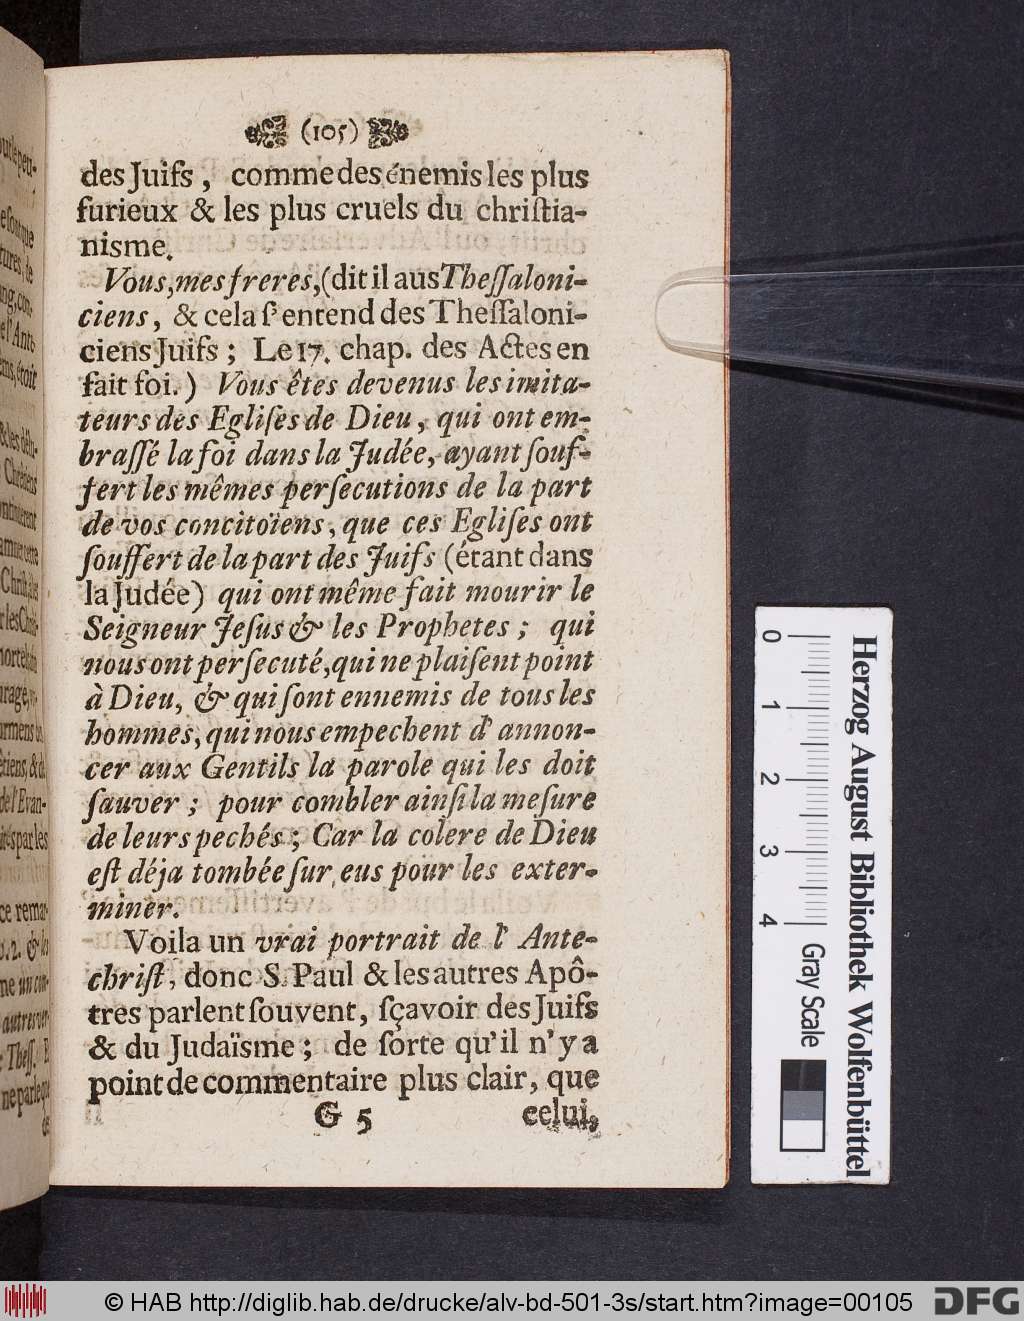 (105)
des Juifs, comme des énemis les plus
furieux & les plus cruels du chriſtia-
nisme.
Vous, mes freres, (dit il aus Theſſaloni-
ciens, & cela ſ'entend des Theſſaloni-
ciens Juifs; Le 17. chap. des Actes en
fait foi.) Vous êtes devenus les imita-
teurs des Egliſes de Dieu, qui ont em-
braſſé la foi dans la Judée, ayant ſouf-
fert les mêmes perſecutions de la part
de vos concitoïens, que ces Egliſes ont
ſouffert de la part des Juifs (étant dans
la Judée) qui ont même fait mourir le
Seigneur Jeſus & les Prophetes; qui
nous ont perſecuté, qui ne plaiſent point
à Dieu, & qui ſont ennemis de tous les
hommes, qui nous empechent d' annon-
cer aux Gentils la parole qui les doit
ſauver; pour combler ainſi la meſure
de leurs pechés; Car la colere de Dieu
eſt déja tombée ſur eus pour les exter-
miner.
Voila un vrai portrait de l' Ante-
chriſt, donc S. Paul & les autres Apô-
tres parlent ſouvent, ſçavoir des Juifs
& du Judaïsme; de ſorte qu'il n'y a
point de commentaire plus clair, que
G 5 celui,
0 1 2 3 4
Gray Scale
Herzog August Bibliothek Wolfenbüttel
© HAB http://diglib.hab.de/drucke/alv-bd-501-3s/start.htm?image=00105
DFG